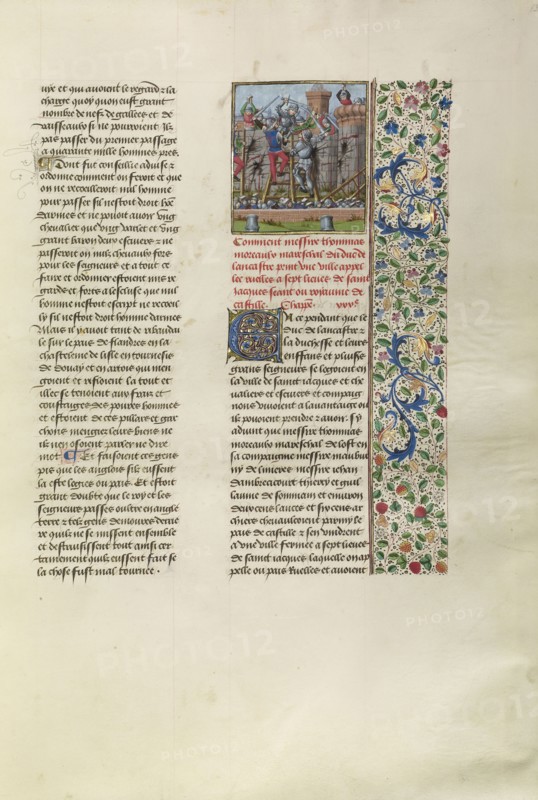 uye et qui avoient le regard et la
charge quoy quon eust grant
nombre de nefz de gallees et de
vaisseaulx si ne pouroient ilz
pas passer du premier passage
a quarante mille hommes pres.
Dont fut conseillie advise et
ordonne comment on feroit et que
on ne recoeilleroit nul homme
pour passer sil nestoit droit hom
darmes et ne pouoit avoir ung
chevalier que ung varlet et ung
grant baron deux escuiers et ne
passeroit on nulz chevaulx fors
pour les seigneurs et a tout ce
faire et ordonner estoient mis
gardes et fors a lescluse que nul
homme nestoit escript ne recoeil
ly sil nestoit droit homme darmes
Mais il y avoit tant de ribaudail
le sur le pais de flandres en la
chastelenie de lisle en tournesis
de douay et en artois qui men
goient et
et se tenoient aux frais et
des povres hommes
et estoient de ces pillars et gar
chons mengiez leurs biens ne
ilz nen osoient parler ne dire
mot. Et faisoient ces gens
pis que les anglois silz eussent
la este logies ou pais. Et estoit
grant doubte que le roy et les
seigneurs passes oultre en angle
terre et telz gens demourez derrie
re quilz ne se missent ensemble
et destruisissent tout ainsi cer
tainement quilz eussent fait se
la chose fust mal tournee.
Comment messire thommas
moreaulx mareschal du duc de
lancastre print une ville appel
lee ruelles a sept lieues de saint
jacques seant ou royaume de
castille. Chapre.
En ce pendant que le
duc de lancastre et
la duchesse et leurs
enffans et pluiss
grans seigneurs se logoient en
la ville de saint jacques et che
valiers et escuiers et compaig
nons vivoient a lavantaige ou
ilz pouoient prendre et avoir. Il
advint que messire thommas
moreaulx mareschal de lost en
sa compaignie messire maubru
ny de linieres messire jehan
dambrecourt thiery et guil
laume de sommain et environ
deux cens lances et six cens ar
chiers chevaulcerent parmy le
pais de castille et sen vindrent
a une ville fermee a sept lieues
de saint jacques laquelle on ap
pelle ou pais Ruelles et avoient